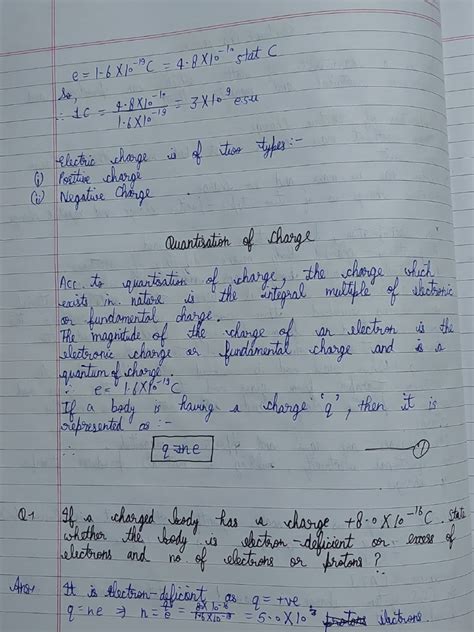 e = 1.6 X 10⁻¹⁹ C = 4.8 X 10⁻¹⁰ stat C
So,
∴ 1C = 4.8 X 10⁻¹⁰ / 1.6 X 10⁻¹⁹ = 3 X 10⁹ esu
Electric charge is of two types:-
(i) Positive charge
(ii) Negative Charge
Quantisation of charge
Acc. to quantisation of charge, the charge which
exists in nature is the integral multiple of electronic
or fundamental charge.
The magnitude of the charge of an electron is the
electronic charge or fundamental charge and is a
quantum of charge.
∴ e = 1.6 X 10⁻¹⁹ C
If a body is having a charge 'q', then it is
represented as :-
q = ne
Q-1 If a charged body has a charge +8.0 X 10⁻¹⁶ C. State
whether the body is electron-deficient or excess of
electrons and no of electrons or protons ?
Ans: It is electron-deficient as q = +ve
q = ne ⇒ n = q/e = = 5.0 X 10³ electrons.